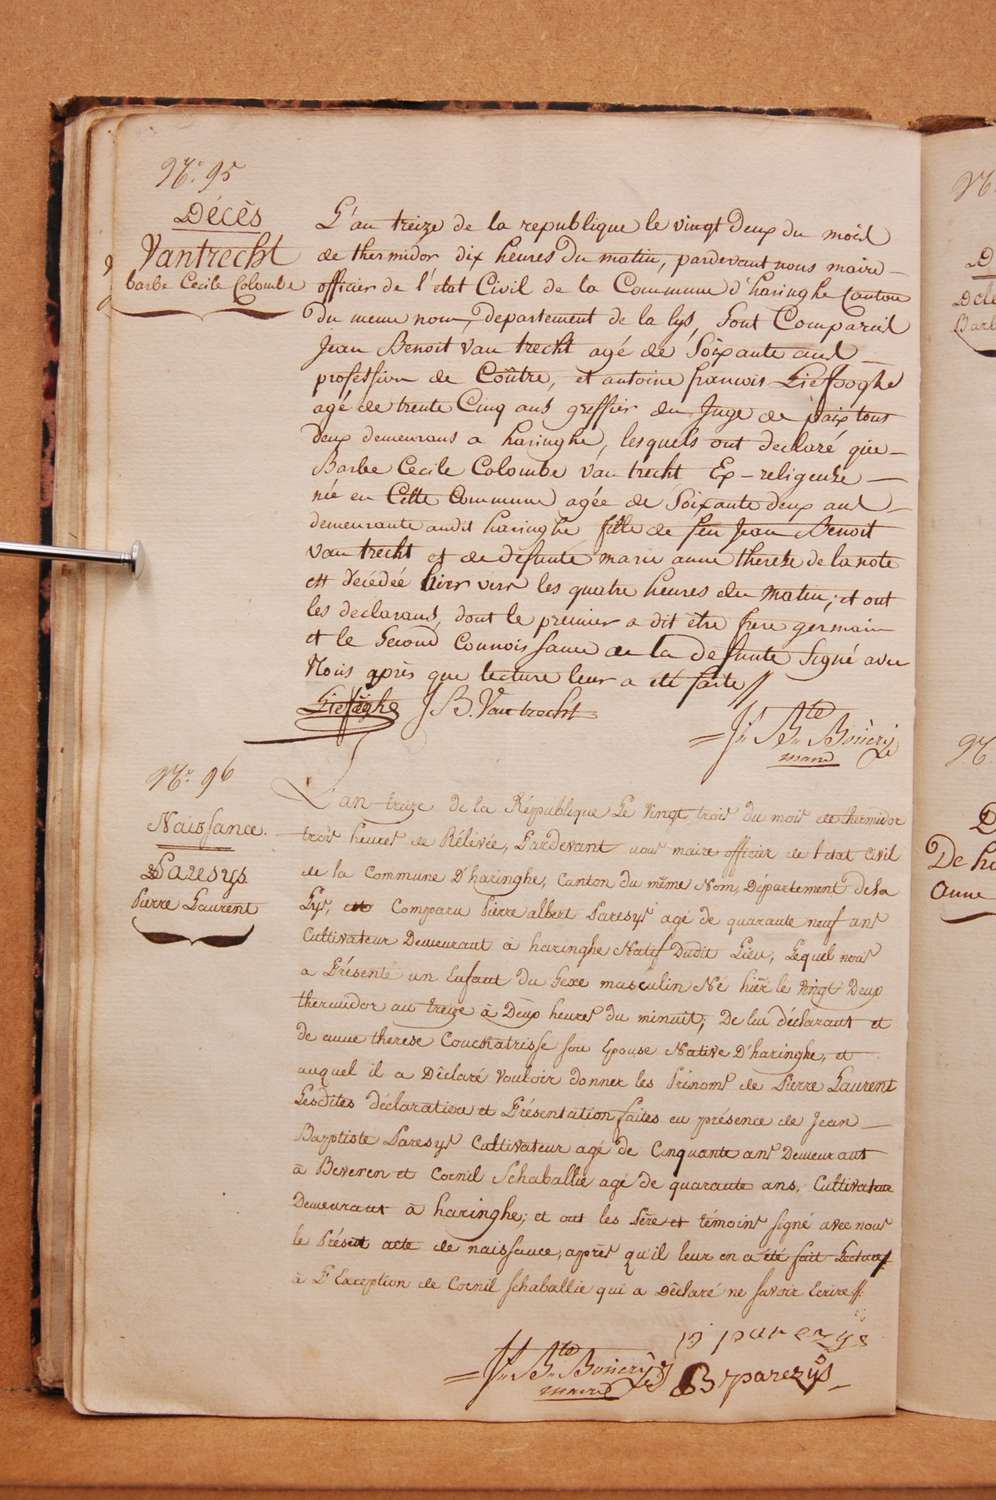 N.º 95
Décès
Vantrecht
barbe Cecile Colombe
L'an treize de la republique le vingt deux du mois
de thermidor dix heures du matin, pardevant nous maire
officier de l'état Civil de la Commune d'haringhe Canton
du meme nom, departement de la lys, Sont Comparus
Jean Benoit van trecht agé de Soixante ans
profession de Coûtre, et antoine francois Liefooghe
agé de trente Cinq ans greffier du Juge de paix tous
deux demeurans a haringhe, lesquels ont declaré que
Barbe Cecile Colombe van trecht Ex-religeuse
née en Cette Commune agée de Soixante deux ans
demeurante audit haringhe fille de feu Jean Benoit
van trecht et de défunte marie anne therese de la note
est décédée hier vers les quatre heures du matin; et ont
les declarans, dont le premier a dit être frere germain
et le Second Connoissance de la defunte Signé avec
Nous après que lecture leur a eté faite
Liefooghe J B. Van trecht
J.n B.te Bouïery
maire
N.º 96
Naissance.
Paresys
Pierre Laurent
L'an treize de la République Le vingt trois du mois de thermidor
trois heures de Rélivée, Pardevant nous maire officier de l'état Civil
de la Commune D'haringhe, Canton du même Nom, Département de la
Lys, est Comparu Pierre albert Paresys agé de quarante neuf ans
Cultivateur Demeurant à haringhe Natif Dudit Lieu, Lequel nous
a Présenté un Enfant du Sexe masculin Né hier le vingt Deux
thermidor an treize à Deux heures du minuit, De lui déclarant et
de anne therese Couchatrisse son Epouse Native D'haringhe, et
auquel il a Déclaré vouloir donner les Prénoms de Pierre Laurent
Lesdites déclaration et Présentation faites en présence de Jean
Baptiste Paresys Cultivateur agé de Cinquante ans Demeurant
à Beveren et Cornil Schaballie agé de quarante ans, Cultivateur
Demeurant à haringhe; et ont les Père et témoins signé avec nous
le Présent acte de naissance, après qu'il leur en a été fait Lecture
à l'Exception de Cornil Schaballie qui a Déclaré ne savoir Ecrire
p parezys
J.n B.te Bouïery
maire
B parezys